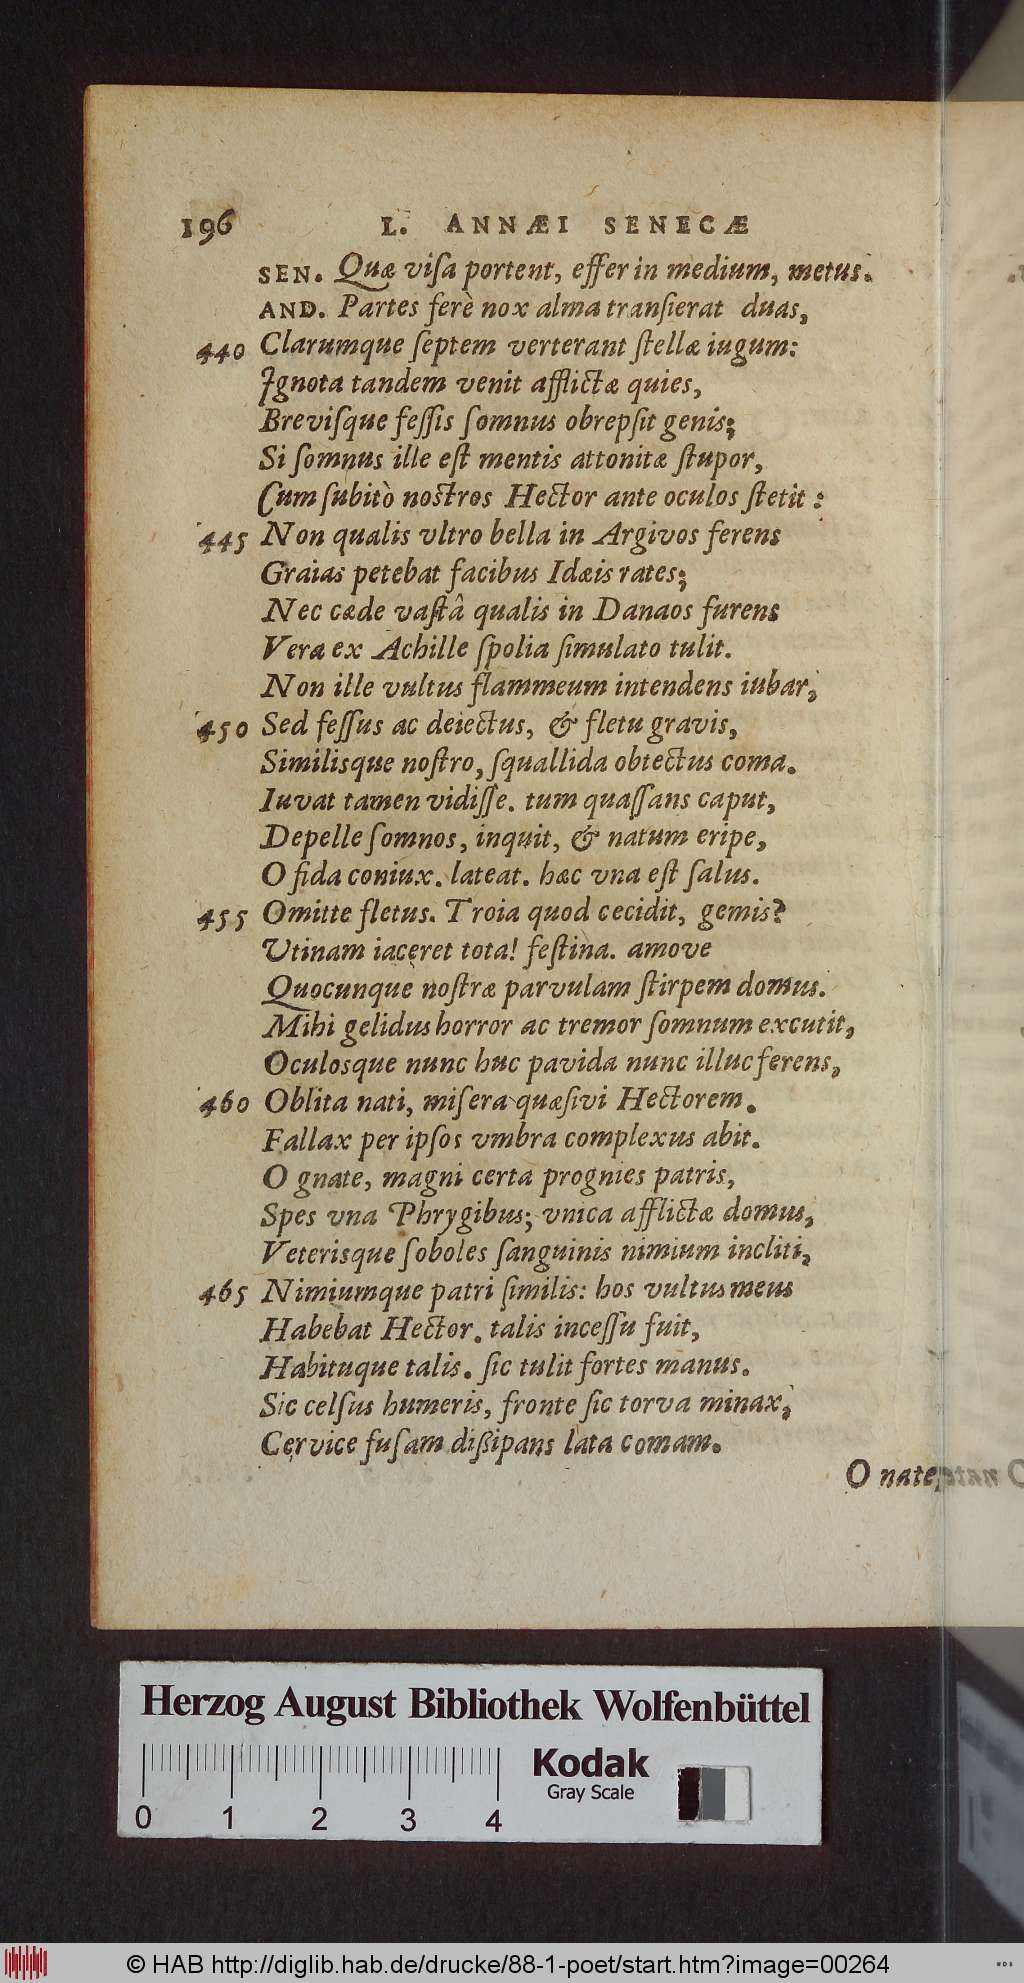 196 L. ANNÆI SENECÆ
SEN. Quæ visa portent, effer in medium, metus.
AND. Partes ferè nox alma transierat duas,
440 Clarumque septem verterant stellæ iugum:
Ignota tandem venit afflictæ quies,
Brevisque fessis somnus obrepsit genis;
Si somnus ille est mentis attonitæ stupor,
Cum subitò nostros Hector ante oculos stetit:
445 Non qualis vltro bella in Argivos ferens
Graias petebat facibus Idæis rates;
Nec cæde vastâ qualis in Danaos furens
Vera ex Achille spolia simulato tulit.
Non ille vultus flammeum intendens iubar;
450 Sed fessus ac deiectus, & fletu gravis,
Similisque nostro, squallida obtectus coma.
Iuvat tamen vidisse. tum quassans caput,
Depelle somnos, inquit, & natum eripe,
O fida coniux. lateat. hæc vna est salus.
455 Omitte fletus. Troia quod cecidit, gemis?
Utinam iaceret tota! festina. amove
Quocunque nostræ parvulam stirpem domus.
Mihi gelidus horror ac tremor somnum excutit,
Oculosque nunc huc pavida nunc illuc ferens,
460 Oblita nati, misera quæsivi Hectorem.
Fallax per ipsos vmbra complexus abit.
O gnate, magni certa prognies patris,
Spes vna Phrygibus; vnica afflictæ domus,
Veterisque soboles sanguinis nimium incliti,
465 Nimiumque patri similis: hos vultus meus
Habebat Hector. talis incessu fuit,
Habituque talis. sic tulit fortes manus.
Sic celsus humeris, fronte sic torva minax,
Cervice fusam dissipans lata comam.
O nate,
Herzog August Bibliothek Wolfenbüttel
Kodak
Gray Scale
0 1 2 3 4
© HAB http://diglib.hab.de/drucke/88-1-poet/start.htm?image=00264